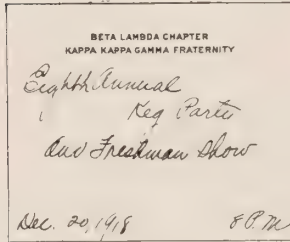 BETA LAMBDA CHAPTER
KAPPA KAPPA GAMMA FRATERNITY
Eighth Annual
Keg Party
and Freshman Show
Dec. 20, 1918
8 P.M